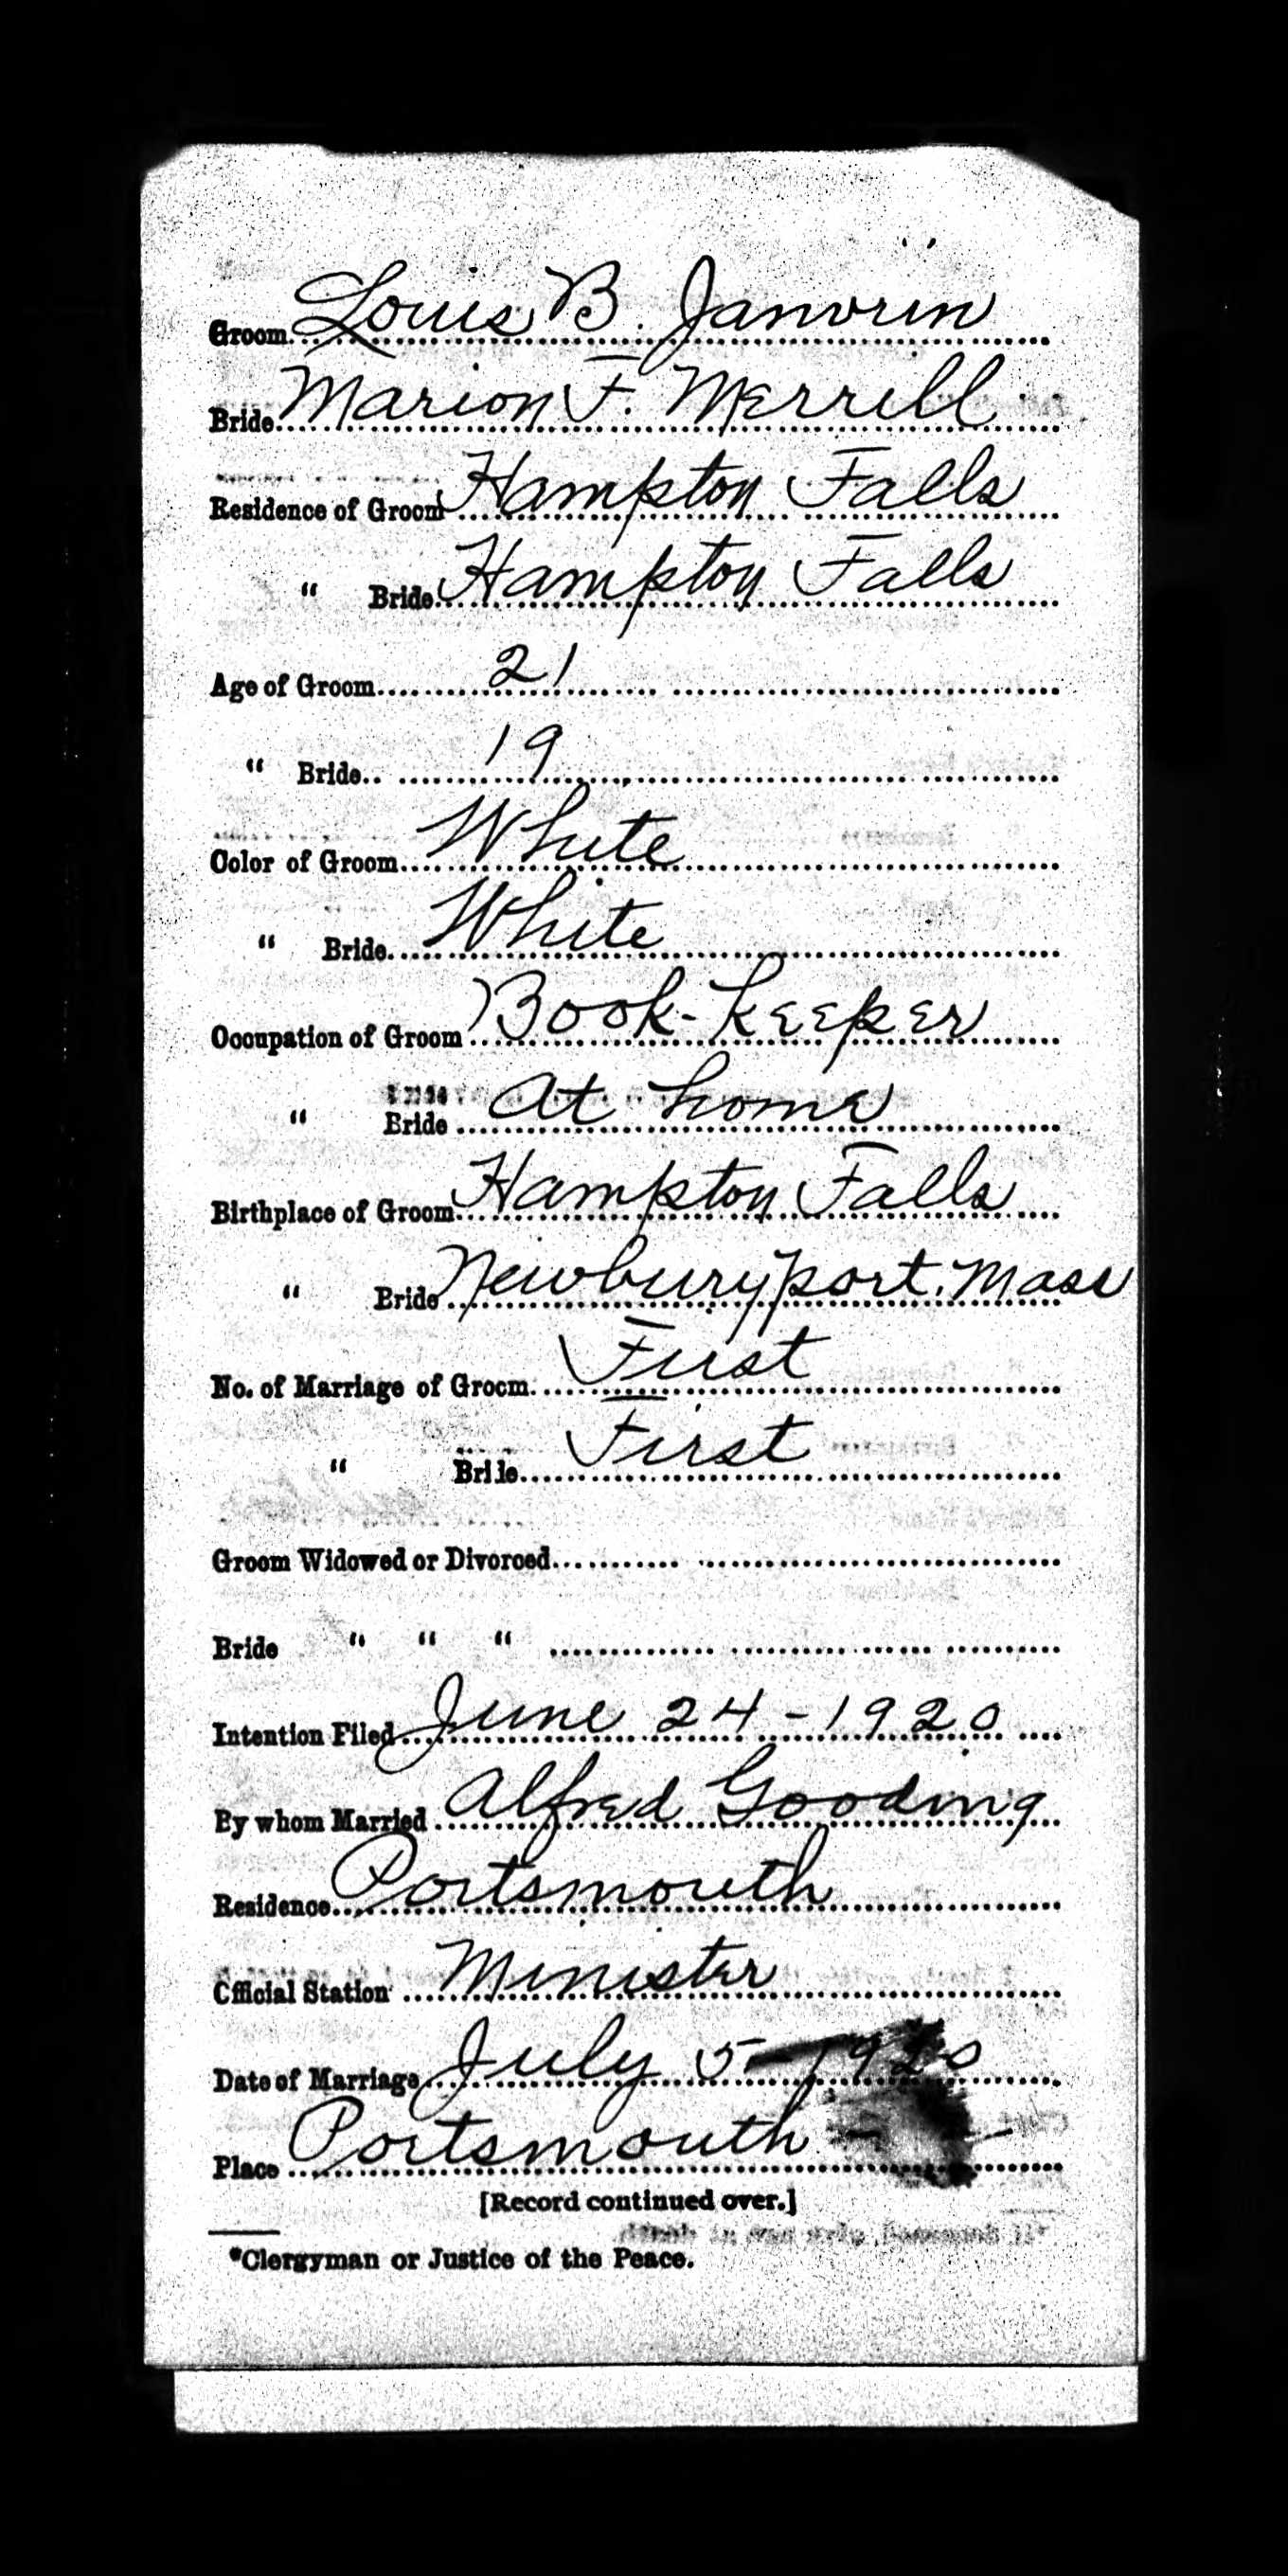 Groom Louis B. Janvrin
Bride Marion F. Merrill
Residence of Groom Hampton Falls
" Bride Hampton Falls
Age of Groom 21
" Bride 19
Color of Groom White
" Bride White
Occupation of Groom Book-keeper
" Bride At home
Birthplace of Groom Hampton Falls
" Bride Newburyport. Mass
No. of Marriage of Groom First
" Bride First
Groom Widowed or Divorced
Bride " " "
Intention Filed June 24-1920
By whom Married Alfred Gooding
Residence Portsmouth
Official Station Minister
Date of Marriage July 5-1920
Place Portsmouth
[Record continued over.]
*Clergyman or Justice of the Peace.